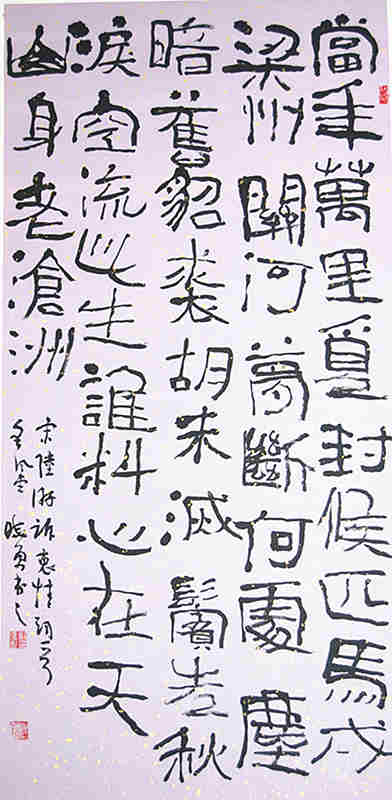 當年萬里覓封候匹馬戍
梁州關河夢斷何處塵
暗舊貂裘胡未滅鬢先秋
淚空流此生誰料心在天
山身老滄洲
宋陸游訴衷情詞
書之